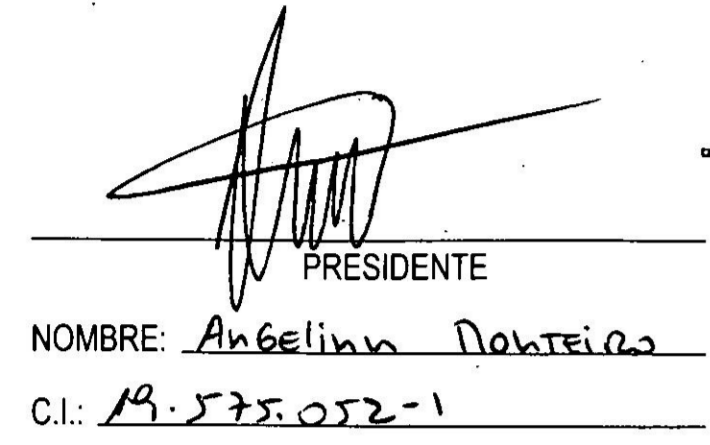 PRESIDENTE
NOMBRE: Angelina Monteiro
C.I.: 19.575.052-1